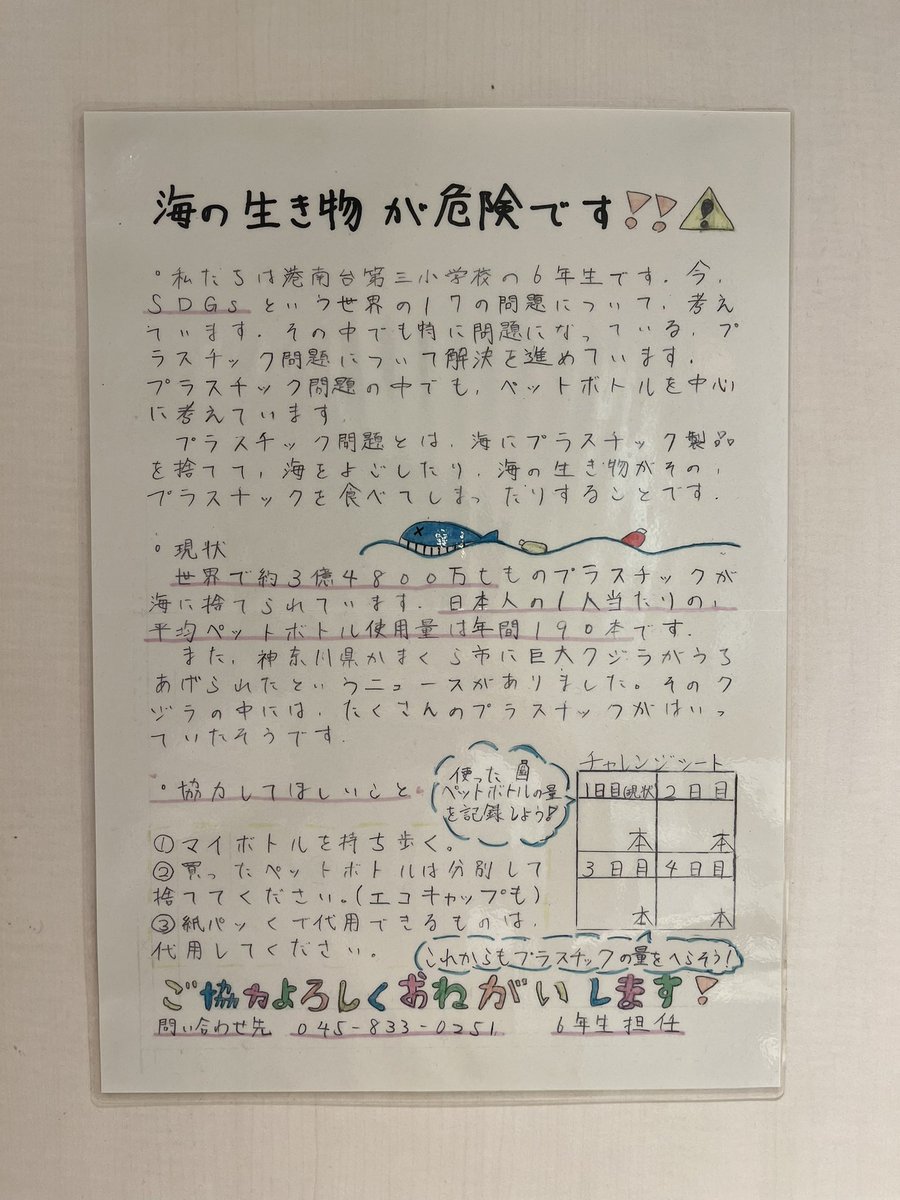 海の生き物が危険です!!
・私たちは港南台第三小学校の6年生です.今,
SDGsという世界の17の問題について,考え
ています.その中でも特に問題になっている,プ
ラスチック問題について解決を進めています.
プラスチック問題の中でも,ペットボトルを中心
に考えています.
プラスチック問題とは,海にプラスチック製品
を捨てて,海をよごしたり,海の生き物がその,
プラスチックを食べてしまったりすることです.
・現状
世界で約3億4800万tものプラスチックが
海に捨てられています.日本人の1人当たりの,
平均ペットボトル使用量は年間190本です.
また,神奈川県かまくら市に巨大クジラがうち
あげられたというニュースがありました。そのク
ジラの中には,たくさんのプラスチックがはいっ
ていたそうです.
・協力してほしいこと
①マイボトルを持ち歩く。
②買ったペットボトルは分別して
捨ててください。(エコキャップも)
③紙パックで代用できるものは,
代用してください。
使った
ペットボトルの量
を記録しよう!
チャレンジシート
1日目(現状) 2日目
本 本
3日目 4日目
本 本
これからもプラスチックの量をへらそう!
ご協力よろしくおねがいします!
問い合わせ先 045-833-0251 6年生担任